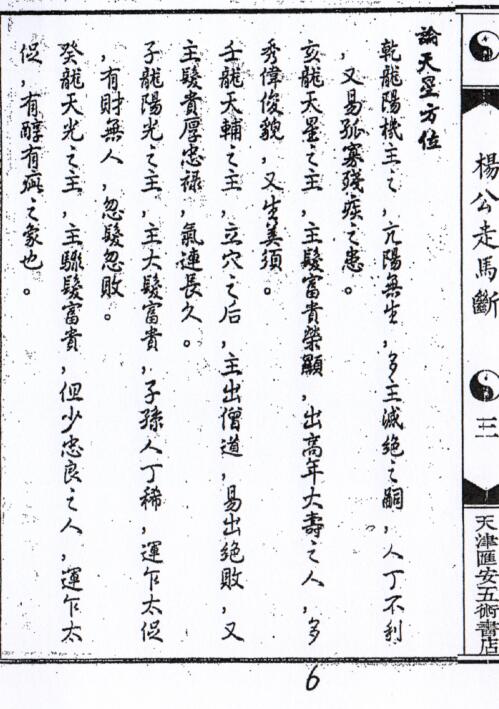 論天星方位
乾龍陽機主之,亢陽無生,多主滅絕之嗣,人丁不利
,又易孤寡殘疾之患。
亥龍天星之主,主髮富貴榮顯,出高年大壽之人,多
秀偉俊貌,又生美須。
壬龍天輔之主,立穴之后,主出僧道,易出絕敗,又
主髮貴厚忠祿,氣連長久。
子龍陽光之主,主大髮富貴,子孫人丁稀,運乍太促
,有財無人,忽髮忽敗。
癸龍天光之主,主驟髮富貴,但少忠良之人,運乍太
促,有醇有疵之家也。
楊公走馬斷
三
天津匯安五術書店
6